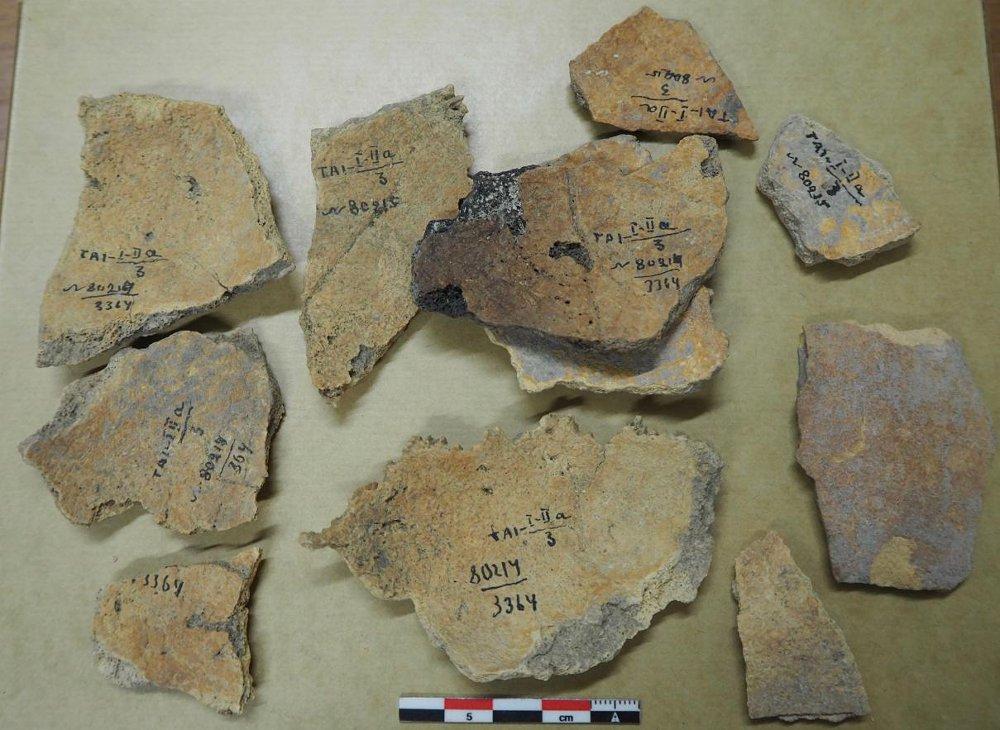 TA1-I-IIa
3
~ 80215
TA1-I-IIa
3
~ 80215
TA1-I-IIa
3
~ 80215
TA1-I-IIa
3
~ 80214
3364
TA1-I-IIa
3
~ 80214
3364
TA1-I-IIa
3
~ 80214
364
TA1-I-IIa
3
80214
3364
3364
5
cm
A